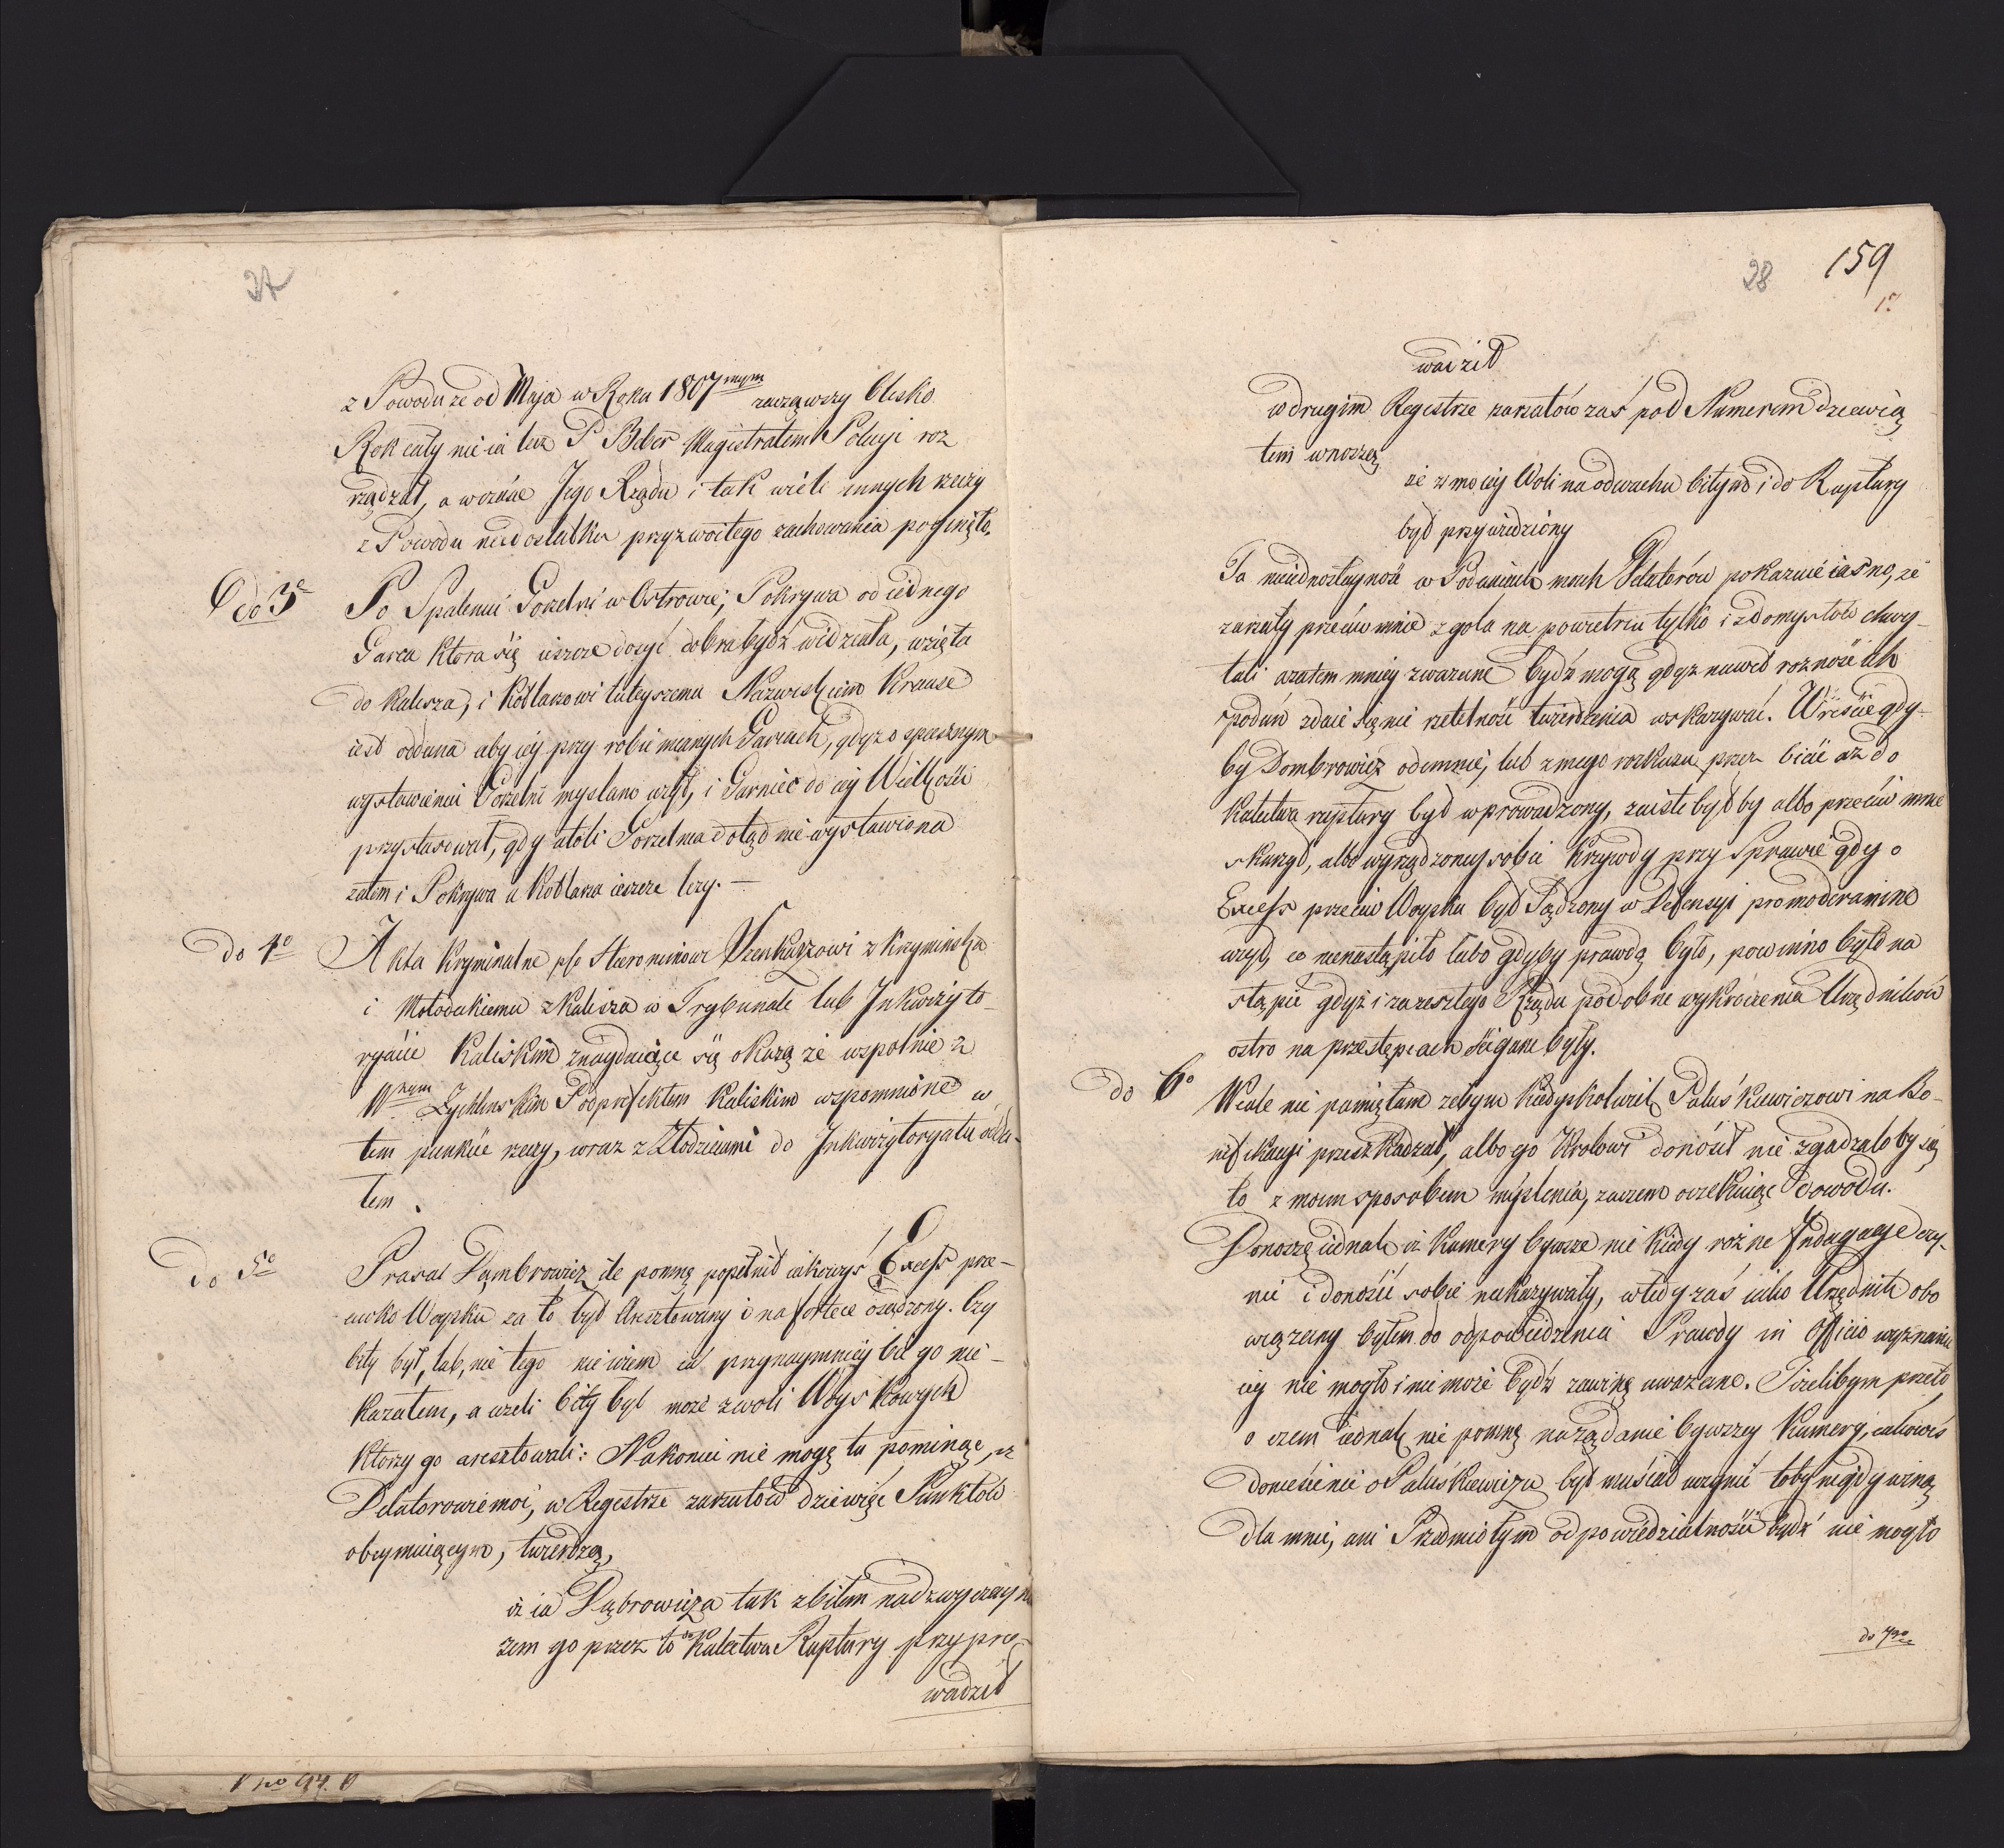 27
z Powodu ze od Maja w Roku 1807mym zacząwszy blisko
Rok cały nie ia lecz P Biber Magistratem Policyi roz
rządzał, a wczasie Jego Rządu i tak wiele innych rzeczy
z Powodu niedostatku przyzwoitego zachowania poginęło.
do 3o Po Spaleniu Gorzelni w Ostrowie, Pokrywa od iednego
Garca ktora się ieszcze dosyć dobra bydź widziała, wzięta
do Kalisza, i Kotlarzowi tuteyszemu Nazwiskiem Krause
iest oddana aby iey przy robieniu nowych Garcach, gdyz o spiesznym
wystawieniu Gorzelni myslano użył, i Garniec do iey Wielkości
przystosował, gdy atoli Gorzelnia dotąd nie wystawiona
zatem i Pokrywa u Kotlarza ieszcze lezy.—
do 4o Akta Kryminalne Szenkarzowi z Krzyminska
i Mołodeckiemu z Kalisza w Trybunale lub Inkwizyto-
ryacie Kaliskim znayduiące się okazą że wspolnie z
Wnym Zychlinskim Podprefektem Kaliskim wspomnione w
tem punkcie rzeczy, wraz z Złodzieiami do Inkwizytoryatu odda-
łem.
do 5o Prawda Dąmbrowicz ile pomnę popełnił iakowyś Excess prze-
ciwko Woysku za to był Aresztowany i na fortece osadzony. Czy
bity był, lub, nie tego nie wiem ia przynaymniey bić go nie-
kazałem, a iezeli bity był może z woli Woyskowych
ktorzy go aresztowali: Nakoniec nie mogę tu pominąc, iż
Delatorowie moi, w Regestrze zarzutów dziewięc Punktów
obeymuiącym, twierdzą,
iż ia Dąbrowicza tak zbiłem nadzwyczayn
zem go przez to do Kalectwa Ruptury przypro-
wadził
28 159
wadził
w drugim Regestrze zarzutów zaś pod Numerem dziewią
tem wnoszą
że z moiey Woli na odwachu bitym i do Ruptury
był przywiedziony
Ta nieiednostayność w Podaniach moich Delatorów pokazuie iasno, że
zarzuty przeciw mnie zgoła na powietrzu tylko i z domysłów chwy-
tali a zatem mniey zwazane bydź mogą gdyz nawet roznośc ich
podań zdaie się nie rzetelność twierdzenia wskazywać. Wreście gdy-
by Dombrowicz odemnie, lub z mego rozkazu przez bicie aż do
Kalectwa ruptury był wprowadzony, zaiste był by albo przeciw mnie
skarzył, albo wyrządzoney sobie Krzywdy przy Sprawie gdy o
Excess przeciw Woysku był Sądzony w Defensyi pro moderamine
użył, co nienastąpiło lubo gdyby prawdą było, powinno było na
stąpić gdyż i za zeszłego Rządu podobne wykrocienia Urzędników
ostro na przestępcach ścigane były.
do 6o Wcale nie pamiętam zebym kiedyskolwiek Paluśkiewiczowi na Bo-
nifikacyi przeszkadzał, albo go Krolowi donośił nie zgadzało by się
to z moim sposobem myslenia, zaczem oczekuię Dowodu.
Donoszę iednak iż Kamery bywsze nie kiedy rożne Indagacye czy-
nić i donośić sobie nakazywały, wtedy zaś iako Urzędnik obo
wiązany byłem do odpowiedzenia Prawdy in Officio wyznanie
iey nie mogło i nie może bydź za winę uwazane. Jeżelibym przeto
o czem iednak nie pomnę na żądanie bywszey Kamery, iakowes
doniesienie o Paluśkiewiczu był musiał uczynić toby nigdy winą
dla mnie, ani Przedmiotym odpowiedzialności bydź nie mogło
do 7mo